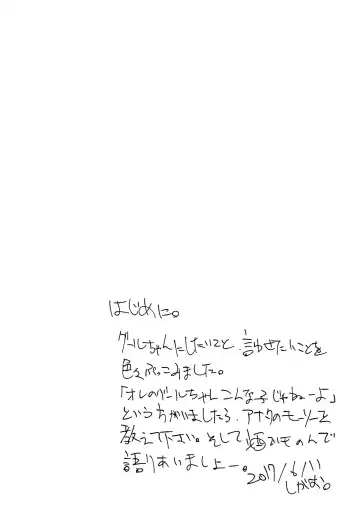 はじめに。
グールちゃんにしたいこと 言わせたいことを
色々ぶっこみました。
「オレのグールちゃんこんな子じゃねーよ」
という方がいましたら、アナタのモーソーを
教えて下さい。そして のんで
語りあいましょー。2017/6/11